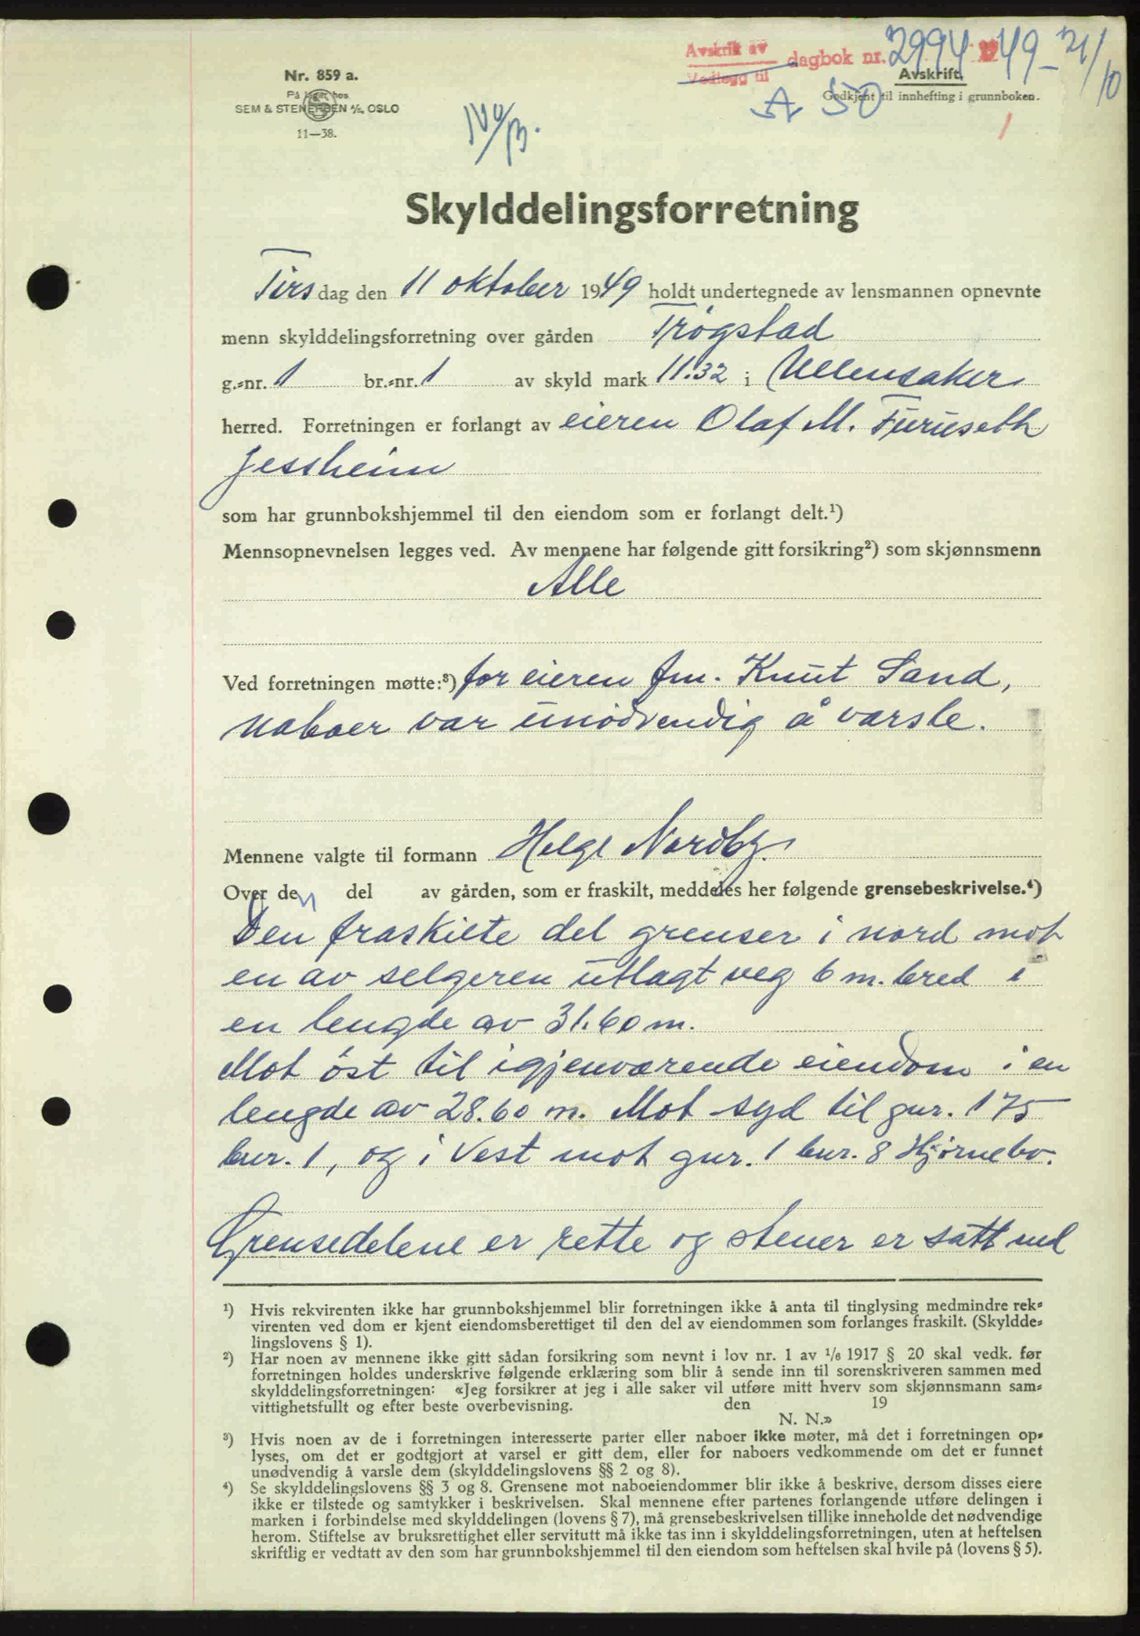 Avskrift av dagbok nr. 2994 1949 - 21/10
Vedlegg til
A 50
Avskrift.
Godkjent til innhefting i grunnboken.
1
Nr. 859 a.
På lager hos
SEM & STENERSEN A/S, OSLO
11—38.
Skylddelingsforretning
Tirsdag den 11 oktober 1949 holdt undertegnede av lensmannen opnevnte
menn skylddelingsforretning over gården Trøgstad
g.-nr. 1 br.-nr. 1 av skyld mark 11.32 i Ullensaker
herred. Forretningen er forlangt av eieren Olaf M. Furuseth
Jessheim
som har grunnbokshjemmel til den eiendom som er forlangt delt.¹)
Mennsopnevnelsen legges ved. Av mennene har følgende gitt forsikring²) som skjønnsmenn
Alle
Ved forretningen møtte:³) for eieren fm. Knut Sand,
naboer var unødvendig å varsle.
Mennene valgte til formann Helge Nordby.
Over den del av gården, som er fraskilt, meddeles her følgende grensebeskrivelse.⁴)
Den fraskilte del grenser i nord mot
en av selgeren utlagt veg 6 m. bred i
en lengde av 31.60 m.
Mot öst til igjenværende eiendom i en
lengde av 28.60 m. Mot syd til gnr. 175
bnr. 1, og i Vest mot gnr. 1 bnr. 8 Hjørnebo.
Grensedelene er rette og stener er satt ned
¹) Hvis rekvirenten ikke har grunnbokshjemmel blir forretningen ikke å anta til tinglysing medmindre rek-
virenten ved dom er kjent eiendomsberettiget til den del av eiendommen som forlanges fraskilt. (Skyldde-
lingslovens § 1).
²) Har noen av mennene ikke gitt sådan forsikring som nevnt i lov nr. 1 av 1/6 1917 § 20 skal vedk. før
forretningen holdes underskrive følgende erklæring som blir å sende inn til sorenskriveren sammen med
skylddelingsforretningen: «Jeg forsikrer at jeg i alle saker vil utføre mitt hverv som skjønnsmann sam-
vittighetsfullt og efter beste overbevisning. den 19
N. N.»
³) Hvis noen av de i forretningen interesserte parter eller naboer ikke møter, må det i forretningen op-
lyses, om det er godtgjort at varsel er gitt dem, eller for naboers vedkommende om det er funnet
unødvendig å varsle dem (skylddelingslovens §§ 2 og 8).
⁴) Se skylddelingslovens §§ 3 og 8. Grensene mot naboeiendommer blir ikke å beskrive, dersom disses eiere
ikke er tilstede og samtykker i beskrivelsen. Skal mennene efter partenes forlangende utføre delingen i
marken i forbindelse med skylddelingen (lovens § 7), må grensebeskrivelsen tillike inneholde det nødvendige
herom. Stiftelse av bruksrettighet eller servitutt må ikke tas inn i skylddelingsforretningen, uten at heftelsen
skriftlig er vedtatt av den som har grunnbokshjemmel til den eiendom som heftelsen skal hvile på (lovens § 5).